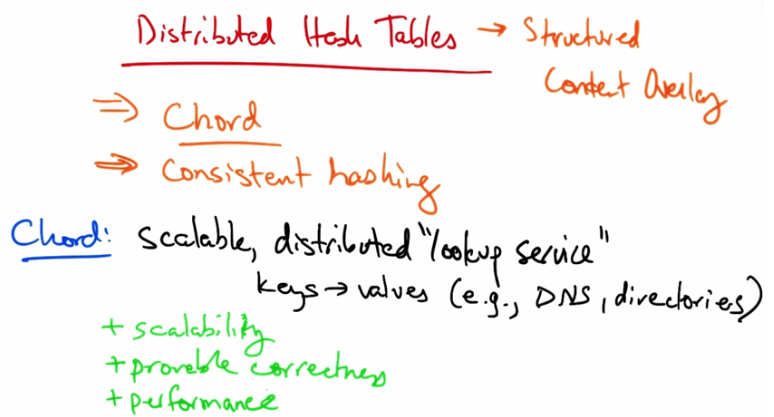 Distributed Hash Tables → Structured
Content Overlay
⇒ Chord
⇒ Consistent hashing
Chord: scalable, distributed "lookup service"
keys → values (e.g., DNS, directories)
+ scalability
+ provable correctness
+ performance